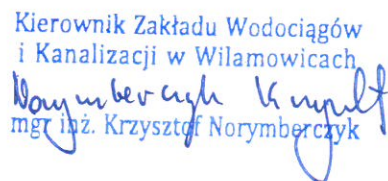 Kierownik Zakładu Wodociągów
i Kanalizacji w Wilamowicach
Norymberczyk Krzysztof
mgr inż. Krzysztof Norymberczyk